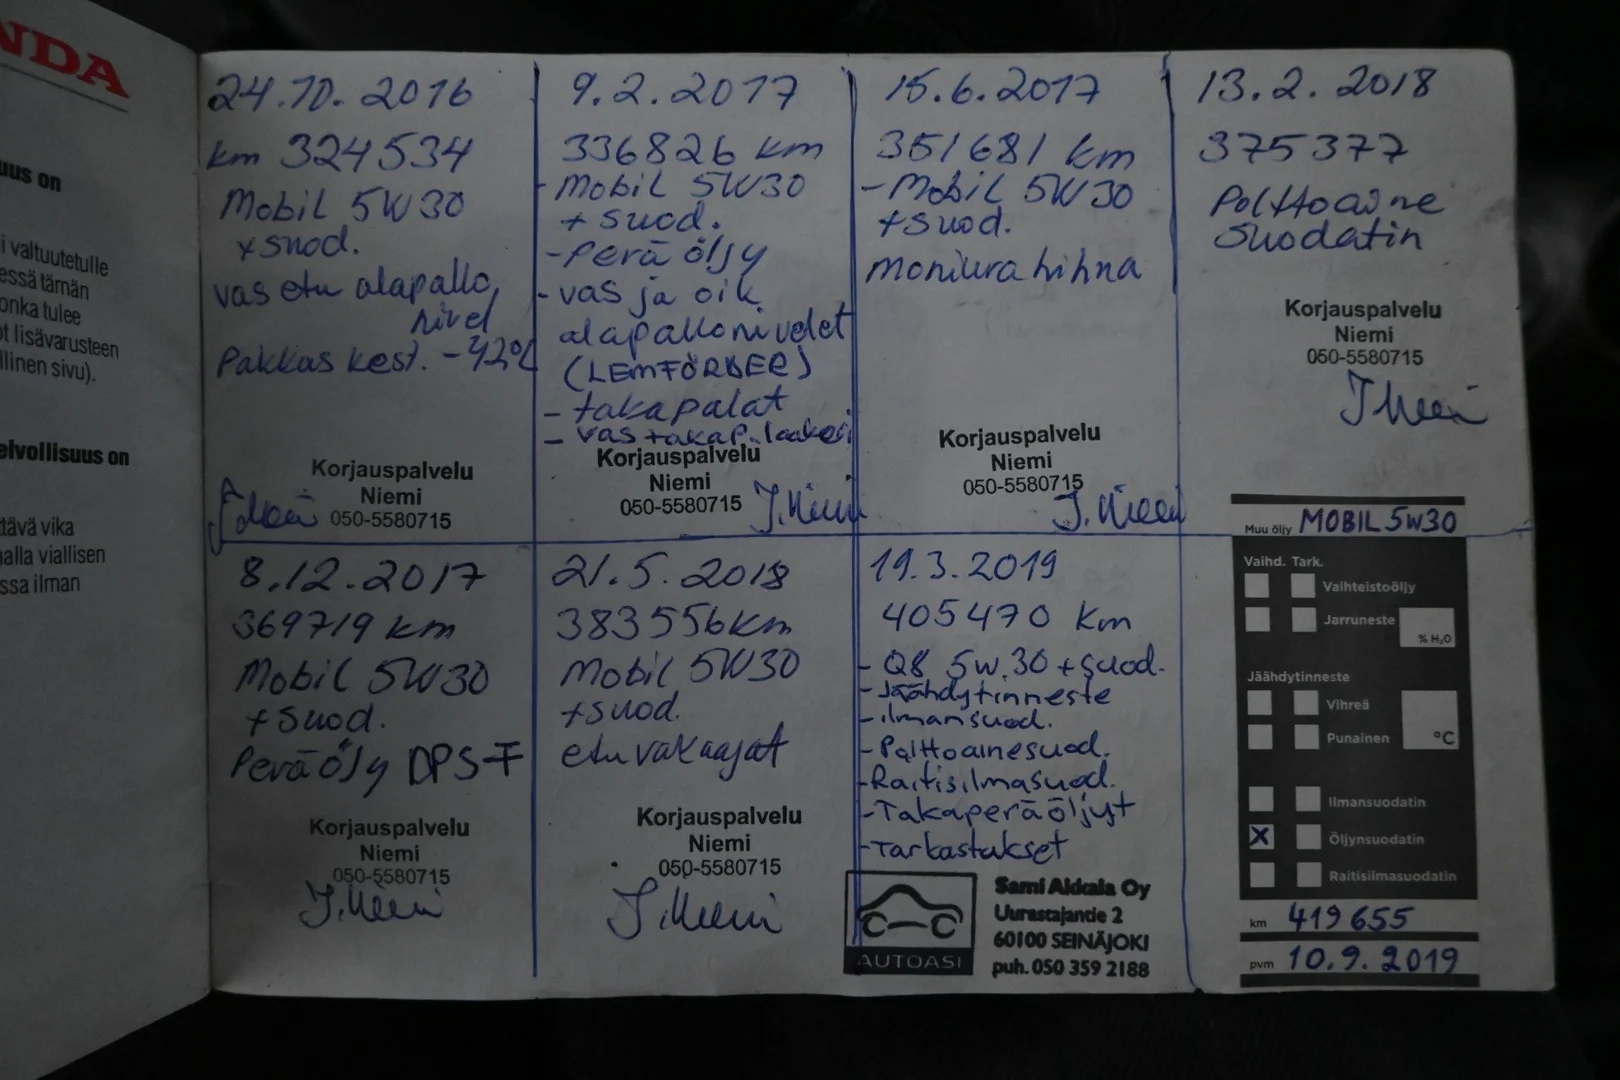 NDA
uus on
i valtuutetulle
essä tämän
onka tulee
ot lisävarusteen
llinen sivu).
elvollisuus on
ttävä vika
nalla viallisen
ssa ilman
24.10.2016
km 324534
Mobil 5W30
+ suod.
vas etu alapallo
nivel
Pakkas kest. -42°C
Korjauspalvelu
Niemi
050-5580715
9.2.2017
336826 km
- Mobil 5W30
+ suod.
- Perä öljy
- vas ja oik
alapallonivelet
(LEMFÖRDER)
- takapalat
- vas takap. laakeri
Korjauspalvelu
Niemi
050-5580715
J. Niemi
15.6.2017
351681 km
- Mobil 5W30
+ suod.
moniura hihna
Korjauspalvelu
Niemi
050-5580715
J. Niemi
13.2.2018
375377
Polttoaine
suodatin
Korjauspalvelu
Niemi
050-5580715
J Niemi
8.12.2017
369719 km
Mobil 5W30
+ suod.
Perä öljy DPS-F
Korjauspalvelu
Niemi
050-5580715
J. Niemi
21.5.2018
383556 km
Mobil 5W30
+ suod.
etu vakaajat
Korjauspalvelu
Niemi
050-5580715
J. Niemi
19.3.2019
405470 km
- Q8 5w.30 + suod.
- Jäähdytinneste
- ilmansuod.
- Polttoainesuod.
- Raitisilmasuod.
- Takaperä öljyt
- Tarkastukset
AUTOASI
Sami Alkkala Oy
Uurastajantie 2
60100 SEINÄJOKI
puh. 050 359 2188
Muu öljy MOBIL 5W30
Vaihd. Tark.
Vaihteistoöljy
Jarruneste
% H₂O
Jäähdytinneste
Vihreä
Punainen
°C
Ilmansuodatin
X Öljynsuodatin
Raitisilmasuodatin
km 419655
pvm 10.9.2019